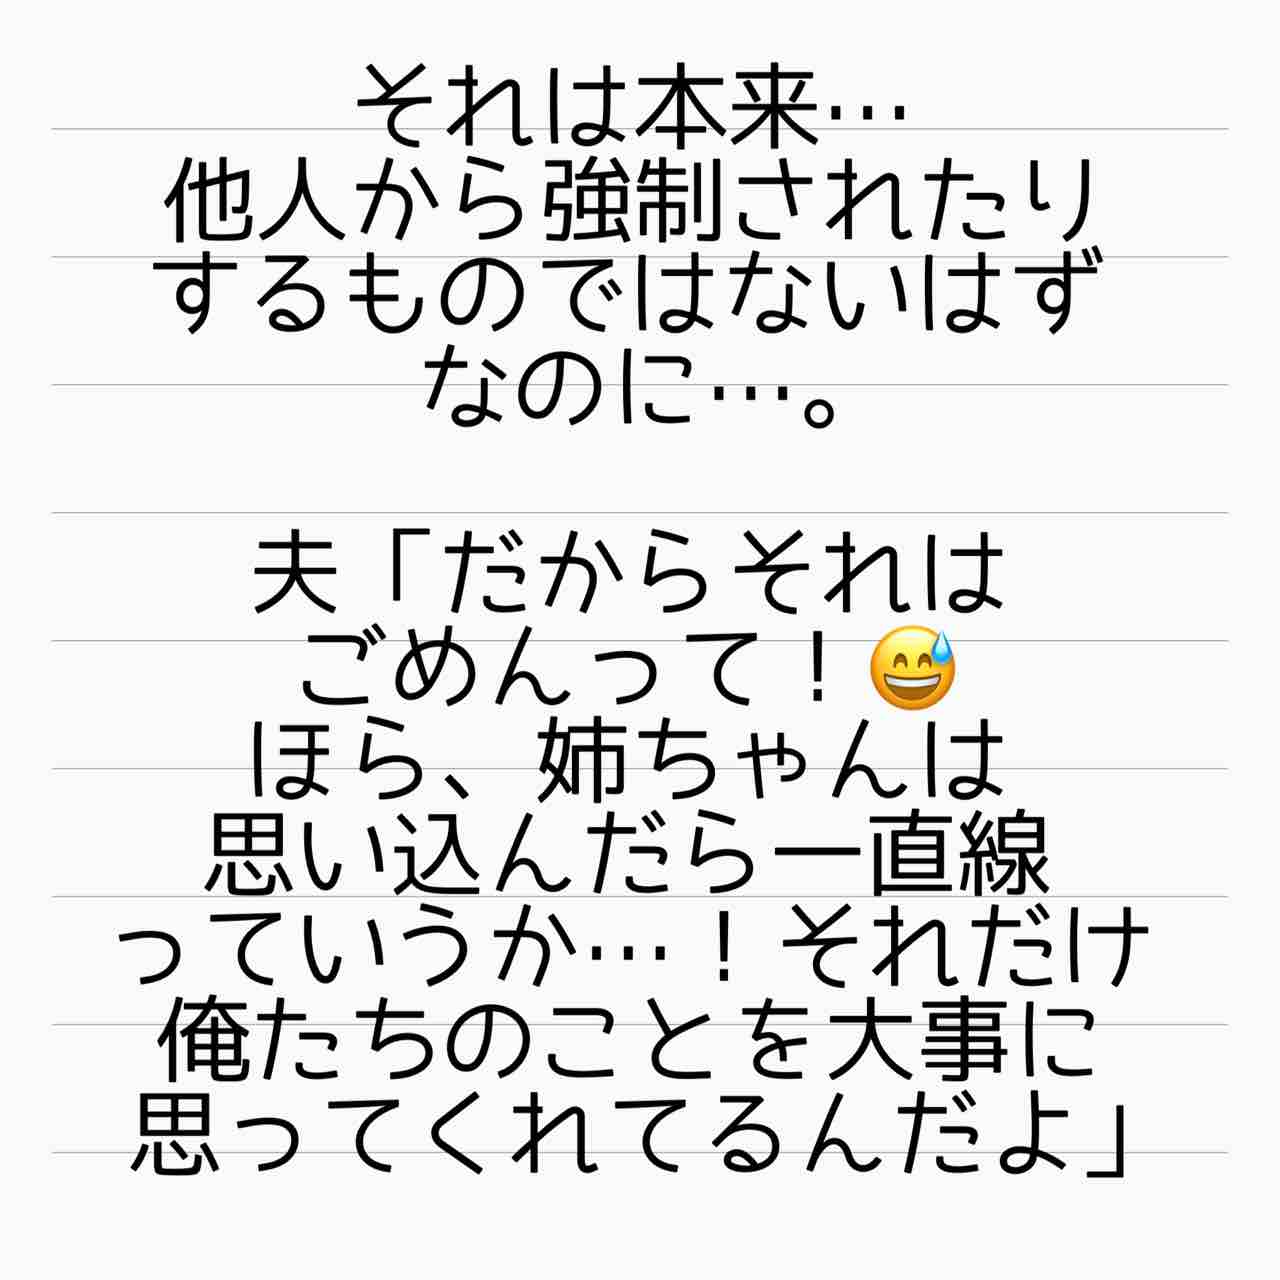 それは本来…
他人から強制されたり
するものではないはず
なのに…。
夫「だからそれは
ごめんって！😅
ほら、姉ちゃんは
思い込んだら一直線
っていうか…！それだけ
俺たちのことを大事に
思ってくれてるんだよ」